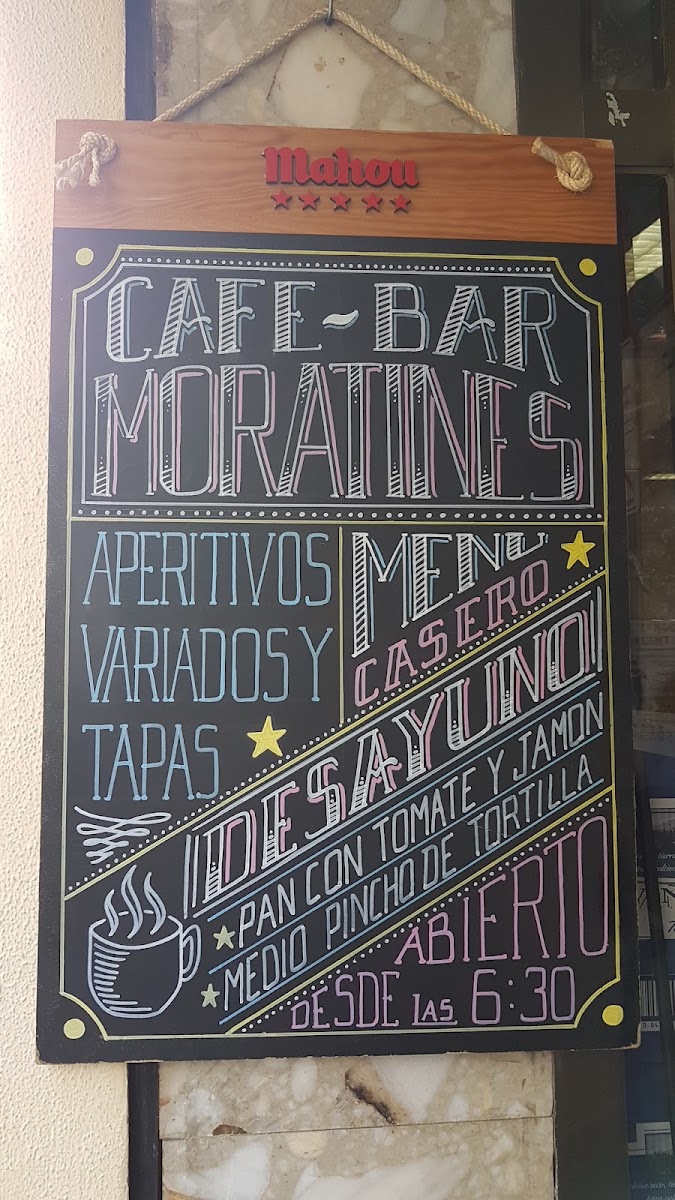 Mahou
CAFE-BAR
MORATINES
APERITIVOS
VARIADOS Y
TAPAS
MENU
CASERO
DESAYUNO
PAN CON TOMATE Y JAMON
MEDIO PINCHO DE TORTILLA
ABIERTO
DESDE LAS 6:30